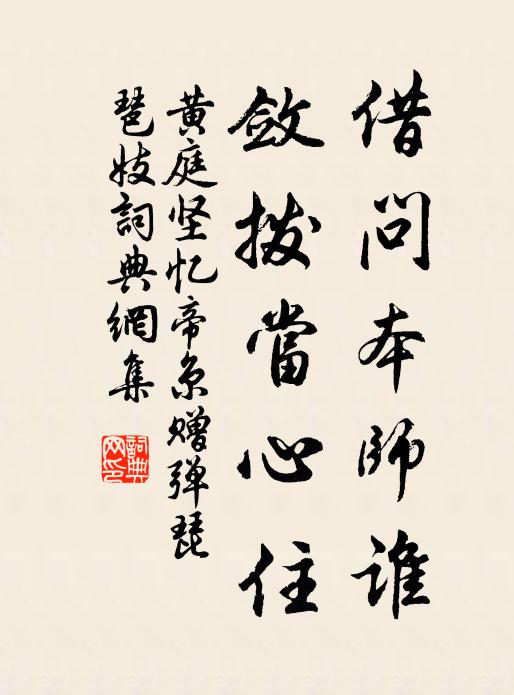 借问本师谁
敛拨當心住
黄庭坚忆帝京赠弹琵
琶妓詞典網集
詞典网印